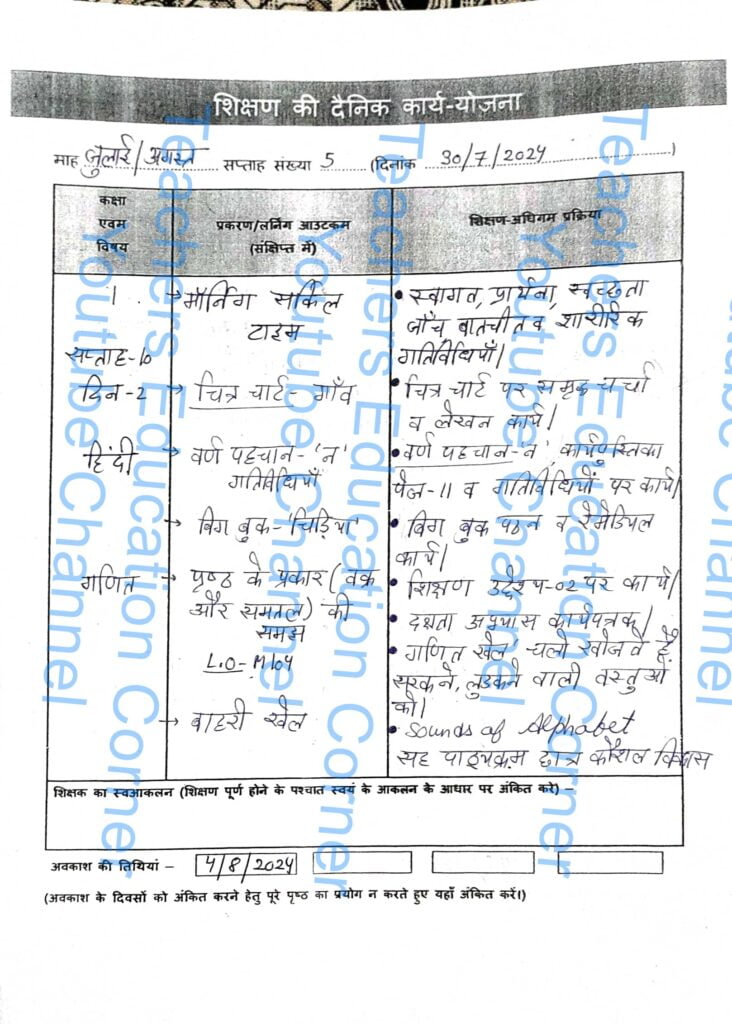 शिक्षण की दैनिक कार्य-योजना
माह जुलाई/अगस्त सप्ताह संख्या 5 (दिनांक 30/7/2024)
कक्षा एवम विषय
प्रकरण/लर्निग आउटकम (संक्षिप्त में)
शिक्षण-अधिगम प्रक्रिया
1
सप्ताह-10
दिन-2
हिंदी
गणित
→ मॉर्निग सर्किल
टाइम
→ चित्र चार्ट- गाँव
→ वर्ण पहचान-'न'
गतिविधियाँ
→ बिग बुक-'चिड़िया'
→ पृष्ठ के प्रकार (वक्र
और समतल) की
समझ
L.O- M104
→ बाहरी खेल
• स्वागत, प्रार्थना, स्वच्छता
जाँच, बातचीत व शारीरिक
गतिविधियाँ।
• चित्र चार्ट पर समृद्ध चर्चा
व लेखन कार्य।
• वर्ण पहचान-'न', कार्यपुस्तिका
पेज-11 व गतिविधियों पर कार्य।
• बिग बुक पठन व रेमेडियल
कार्य।
• शिक्षण उद्देश्य-02 पर कार्य।
• दक्षता अभ्यास कार्यपत्रक।
• गणित खेल 'चलो खोजते हैं
सरकने, लुढकने वाली वस्तुओं
को।
• Sounds of Alphabet
सह पाठ्यक्रम छात्र कौशल विकास
शिक्षक का स्वआकलन (शिक्षण पूर्ण होने के पश्चात स्वयं के आकलन के आधार पर अंकित करे) –
अवकाश की तिथियां – 4/8/2024
(अवकाश के दिवसों को अंकित करने हेतु पूरे पृष्ठ का प्रयोग न करते हुए यहाँ अंकित करें।)
Teachers Education Corner
Youtube Channel
Teachers Education Corner
Youtube Channel
Teachers Education Corner
Youtube Channel